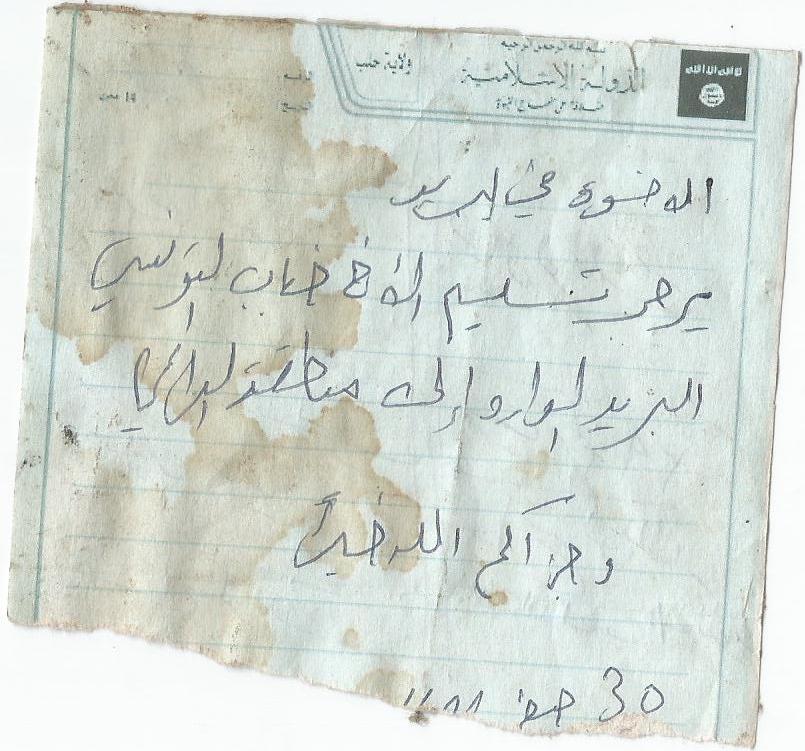 بسم الله الرحمن الرحيم
الدولة الإسلامية
خلافة على منهاج النبوة
ولاية حلب
لا إله إلا الله
الاخوة في البريد
يرجى تسليم الأخ خباب التونسي
البريد الوارد إلى منطقة الراعي
وجزاكم الله خيراً
30 صفر